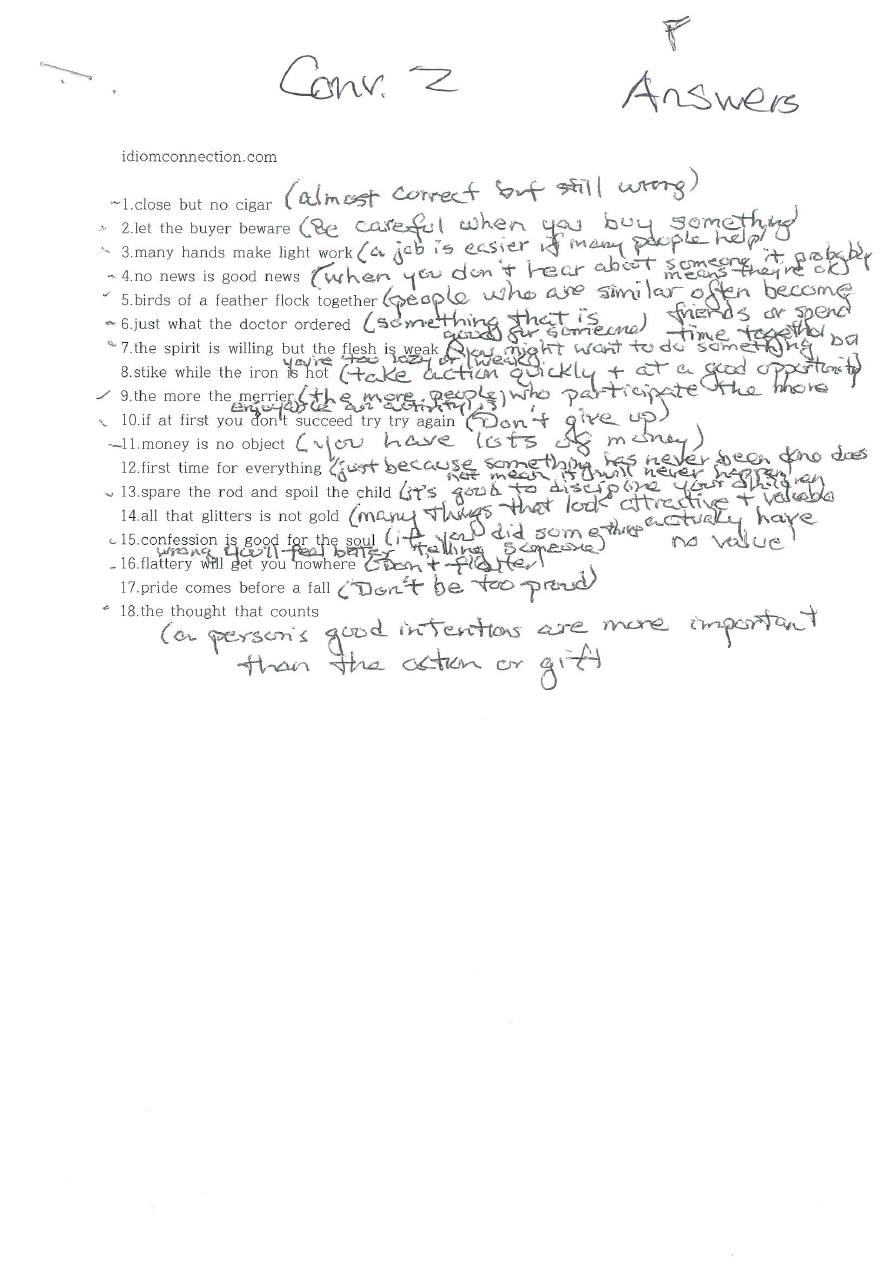 F
Conv. 2 Answers
idiomconnection.com
1.close but no cigar (almost correct but still wrong)
2.let the buyer beware (Be careful when you buy something
3.many hands make light work (a job is easier if many people help)
4.no news is good news (when you don't hear about someone it probably
means they're ok)
5.birds of a feather flock together (people who are similar often become
friends or spend
time together
6.just what the doctor ordered (something that is
good for someone)
7.the spirit is willing but the flesh is weak (you might want to do something but
you're too lazy or weak)
8.stike while the iron is hot (take action quickly + at a good opportunity)
9.the more the merrier (the more people who participate the more
enjoyable an activity is)
10.if at first you don't succeed try try again (Don't give up)
11.money is no object (you have lots of money)
12.first time for everything (just because something has never been done does
not mean it will never happen
13.spare the rod and spoil the child (it's good to discipline your children
14.all that glitters is not gold (many things that look attractive + valuable
actually have
no value
15.confession is good for the soul (if you did something
wrong you'll feel better telling someone)
16.flattery will get you nowhere (Don't flatter)
17.pride comes before a fall (Don't be too proud)
18.the thought that counts
(a person's good intentions are more important
than the action or gift